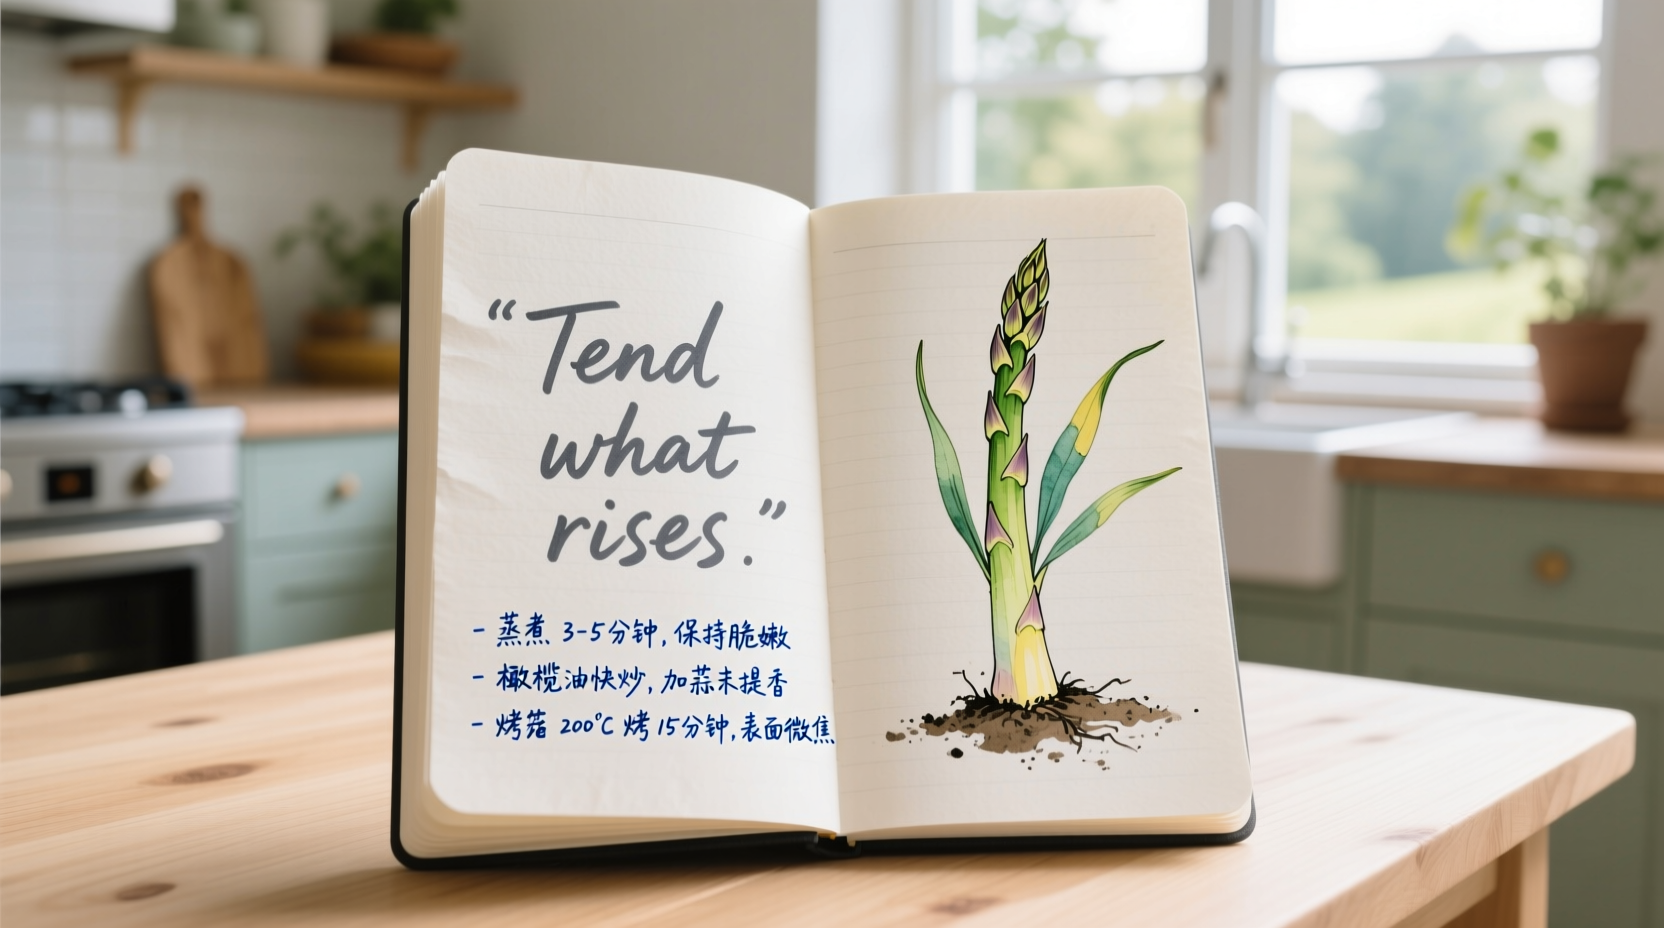 “Tend
what
rises.”
- 蒸煮 3-5分钟, 保持脆嫩
- 橄榄油快炒, 加蒜末提香
- 烤箔 200°C 烤 15分钟, 表面微焦